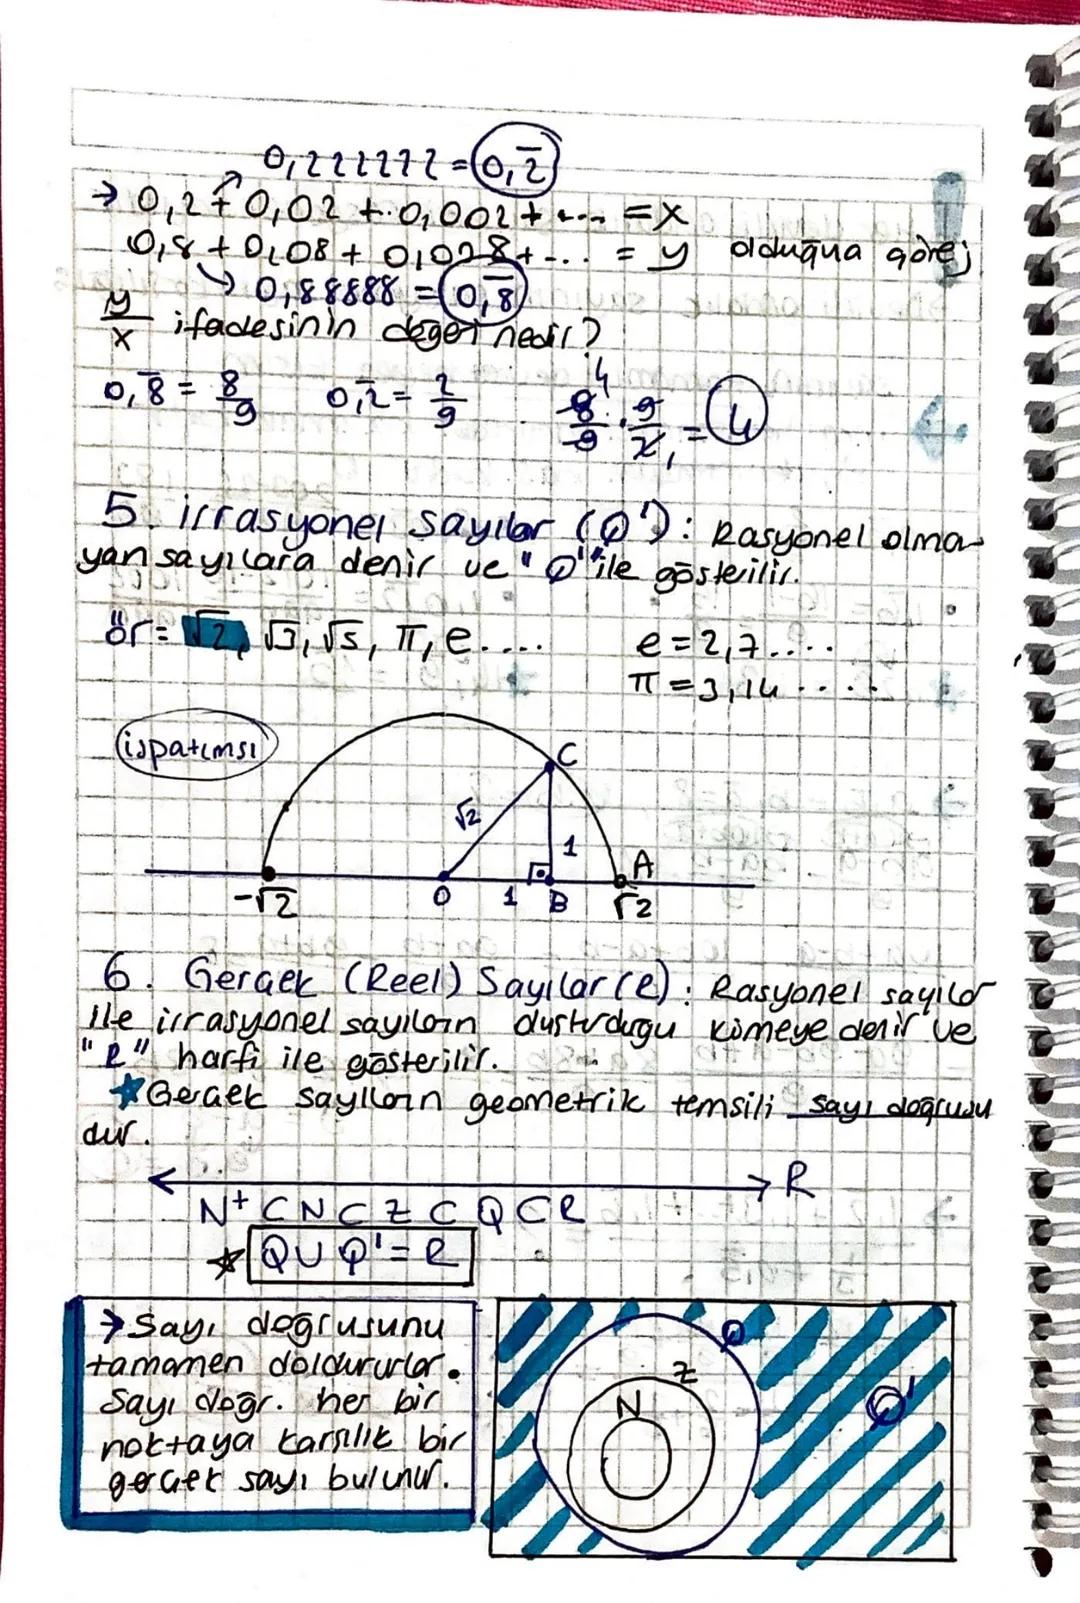 0,222222 = 0,2̅
→ 0,2 + 0,02 + 0,002 + .... = x
0,8 + 0,08 + 0,008 + ... = y olduğuna göre;
↳ 0,88888 = 0,8̅
y/x ifadesinin değeri nedir?
0,8̅ = 8/9 0,2̅ = 2/9 8/9 · 9/2 = 4
4 1
5. irrasyonel sayılar (Q'): Rasyonel olma-
yan sayılara denir ve "Q'" ile gösterilir.
ör = √2, √3, √5, π, e.... e = 2,7....
π = 3,14.....
ispatımsı
C
√2 1
A
-√2 0 1 B √2
6. Gerçek (Reel) Sayılar (R): Rasyonel sayılar
ile irrasyonel sayıların oluşturduğu kümeye denir ve
"R" harfi ile gösterilir.
★Gerçek sayıların geometrik temsili sayı doğrusu
dur.
R
N⁺ ⊂ N ⊂ Z ⊂ Q ⊂ R
★ Q ∪ Q' = R
→ Sayı doğrusunu
tamamen doldururlar.
Sayı doğr. her bir
noktaya karşılık bir
gerçek sayı bulunur.
Q
Z
N
Q'